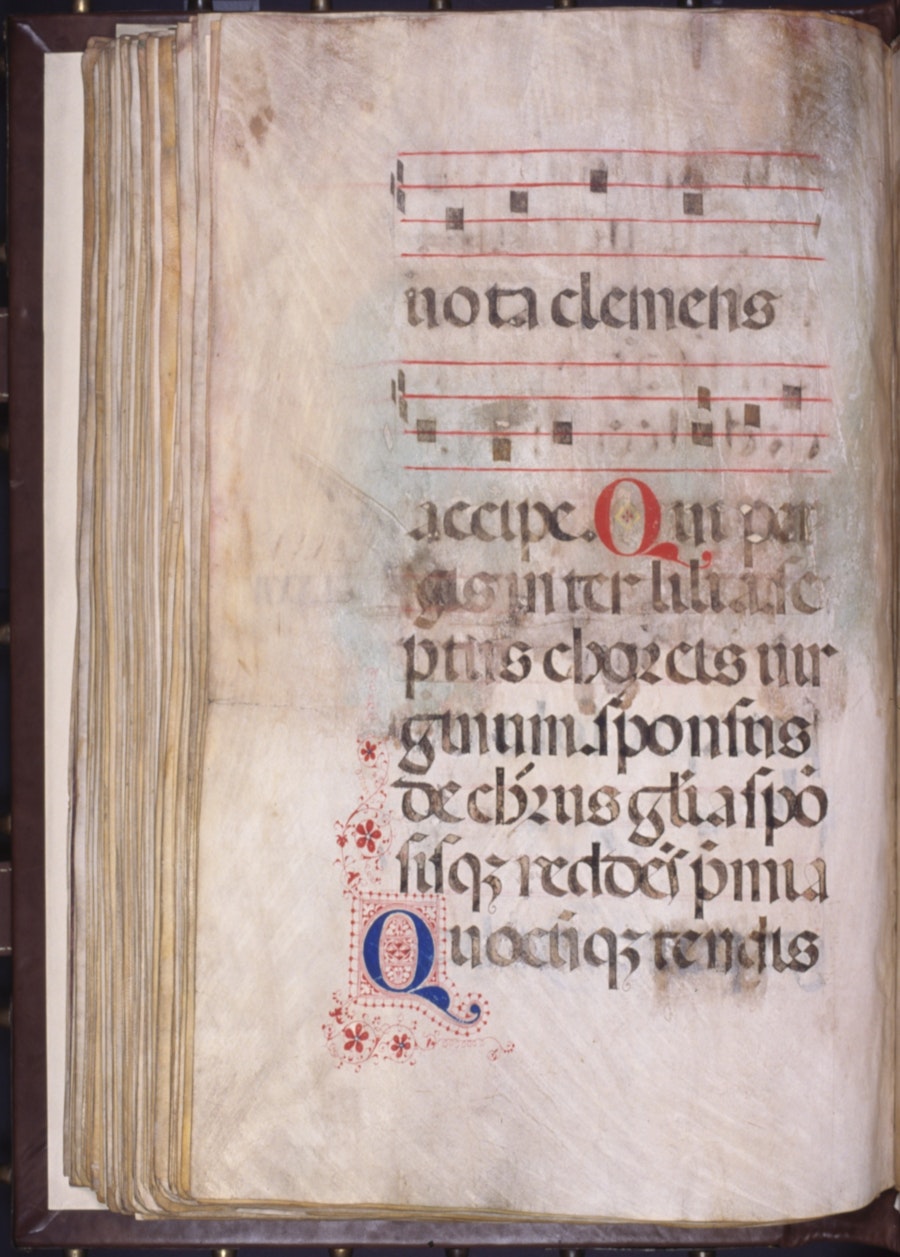 uota clemens
accipe. Qui per
gis inter lilia se
ptus choreis uir
ginum. sponsus
decorus gl̄ia spō
sisqz reddēs p̄mia
Quocūqz tendis